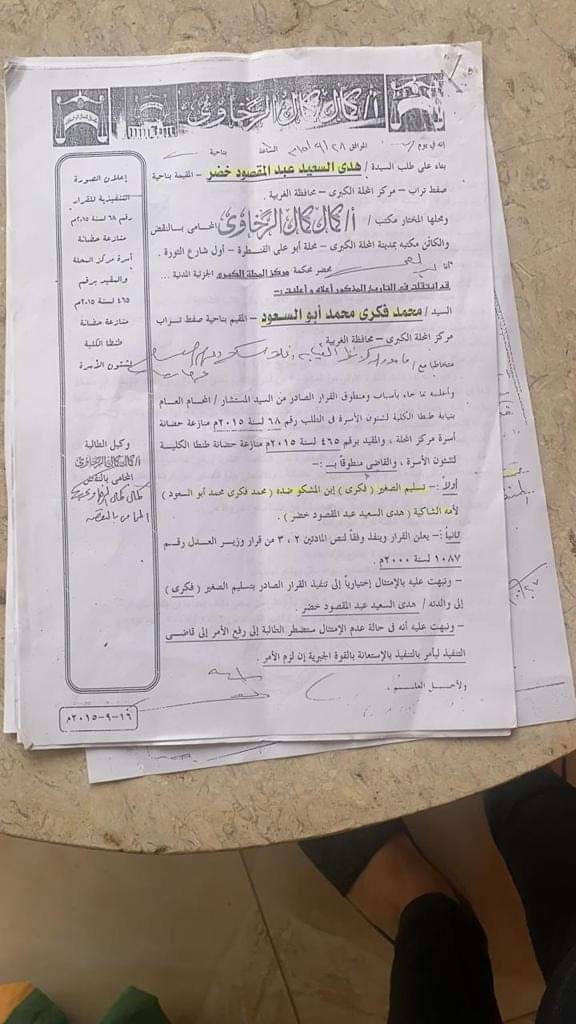 أ/كمال كمال الزخاوي
إنه في يوم الموافق ٢٨/٩/ الساعة بناحية
بناء على طلب السيدة / هدى السعيد عبد المقصود خضر – المقيمة بناحية
صفط تراب – مركز المحلة الكبرى – محافظة الغربية .
ومحلها المختار مكتب / أ/كمال كمال الزخاوي المحامى بالنقض
والكائن مكتبه بمدينة المحلة الكبرى – محلة أبو على القنطرة – أول شارع الثورة .
أنا محضر محكمة مركز المحلة الكبرى الجزئية المدنية ...
قد إنتقلت فى التاريخ المذكور أعلاه وأعلنت :-
السيد / محمد فكرى محمد أبو السعود – المقيم بناحية صفط تراب
مركز المحلة الكبرى – محافظة الغربية .
متخاطبا مع /
وأعلنته بما جاء بأسباب ومنطوق القرار الصادر من السيد المستشار / المحام العام
بنيابة طنطا الكلية لشئون الأسرة فى الطلب رقم ٦٨ لسنة ٢٠١٥م منازعة حضانة
أسرة مركز المحلة ، والمقيد برقم ٤٦٥ لسنة ٢٠١٥م منازعة حضانة طنطا الكلية
لشئون الأسرة ، والقاضى منطوقه بـ :-
أولاً :- تسليم الصغير ( فكرى ) إبن المشكو ضده ( محمد فكرى محمد أبو السعود )
لأمه الشاكية ( هدى السعيد عبد المقصود خضر ) .
ثانياً :- يعلن القرار وينفذ وفقاً لنص المادتين ٢ ، ٣ من قرار وزير العدل رقم
١٠٨٧ لسنة ٢٠٠٠م .
– ونبهت عليه بالإمتثال إختيارياً إلى تنفيذ القرار الصادر بتسليم الصغير ( فكرى )
إلى والدته / هدى السعيد عبد المقصود خضر .
– ونبهت عليه أنه فى حالة عدم الإمتثال ستضطر الطالبة إلى رفع الأمر إلى قاضى
التنفيذ ليأمر بالتنفيذ بالإستعانة بالقوة الجبرية إن لزم الأمر .
ولأجل العلم .
إعلان الصورة
التنفيذية للقرار
رقم ٦٨ لسنة ٢٠١٥م
منازعة حضانة
أسرة مركز المحلة
والمقيد برقم
٤٦٥ لسنة ٢٠١٥م
منازعة حضانة
طنطا الكلية
لشئون الأسرة
وكيل الطالبة
أ/كمال كمال الزخاوي
المحامى بالنقض
١٦-٩-٢٠١٥م